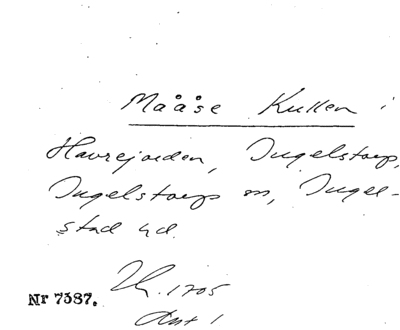 Måååse Kullen i
Havrejorden, Ingelstorp,
Ingelstorps sn, Ingel-
stad hd.
1705
Nr 7387.
Ant 1